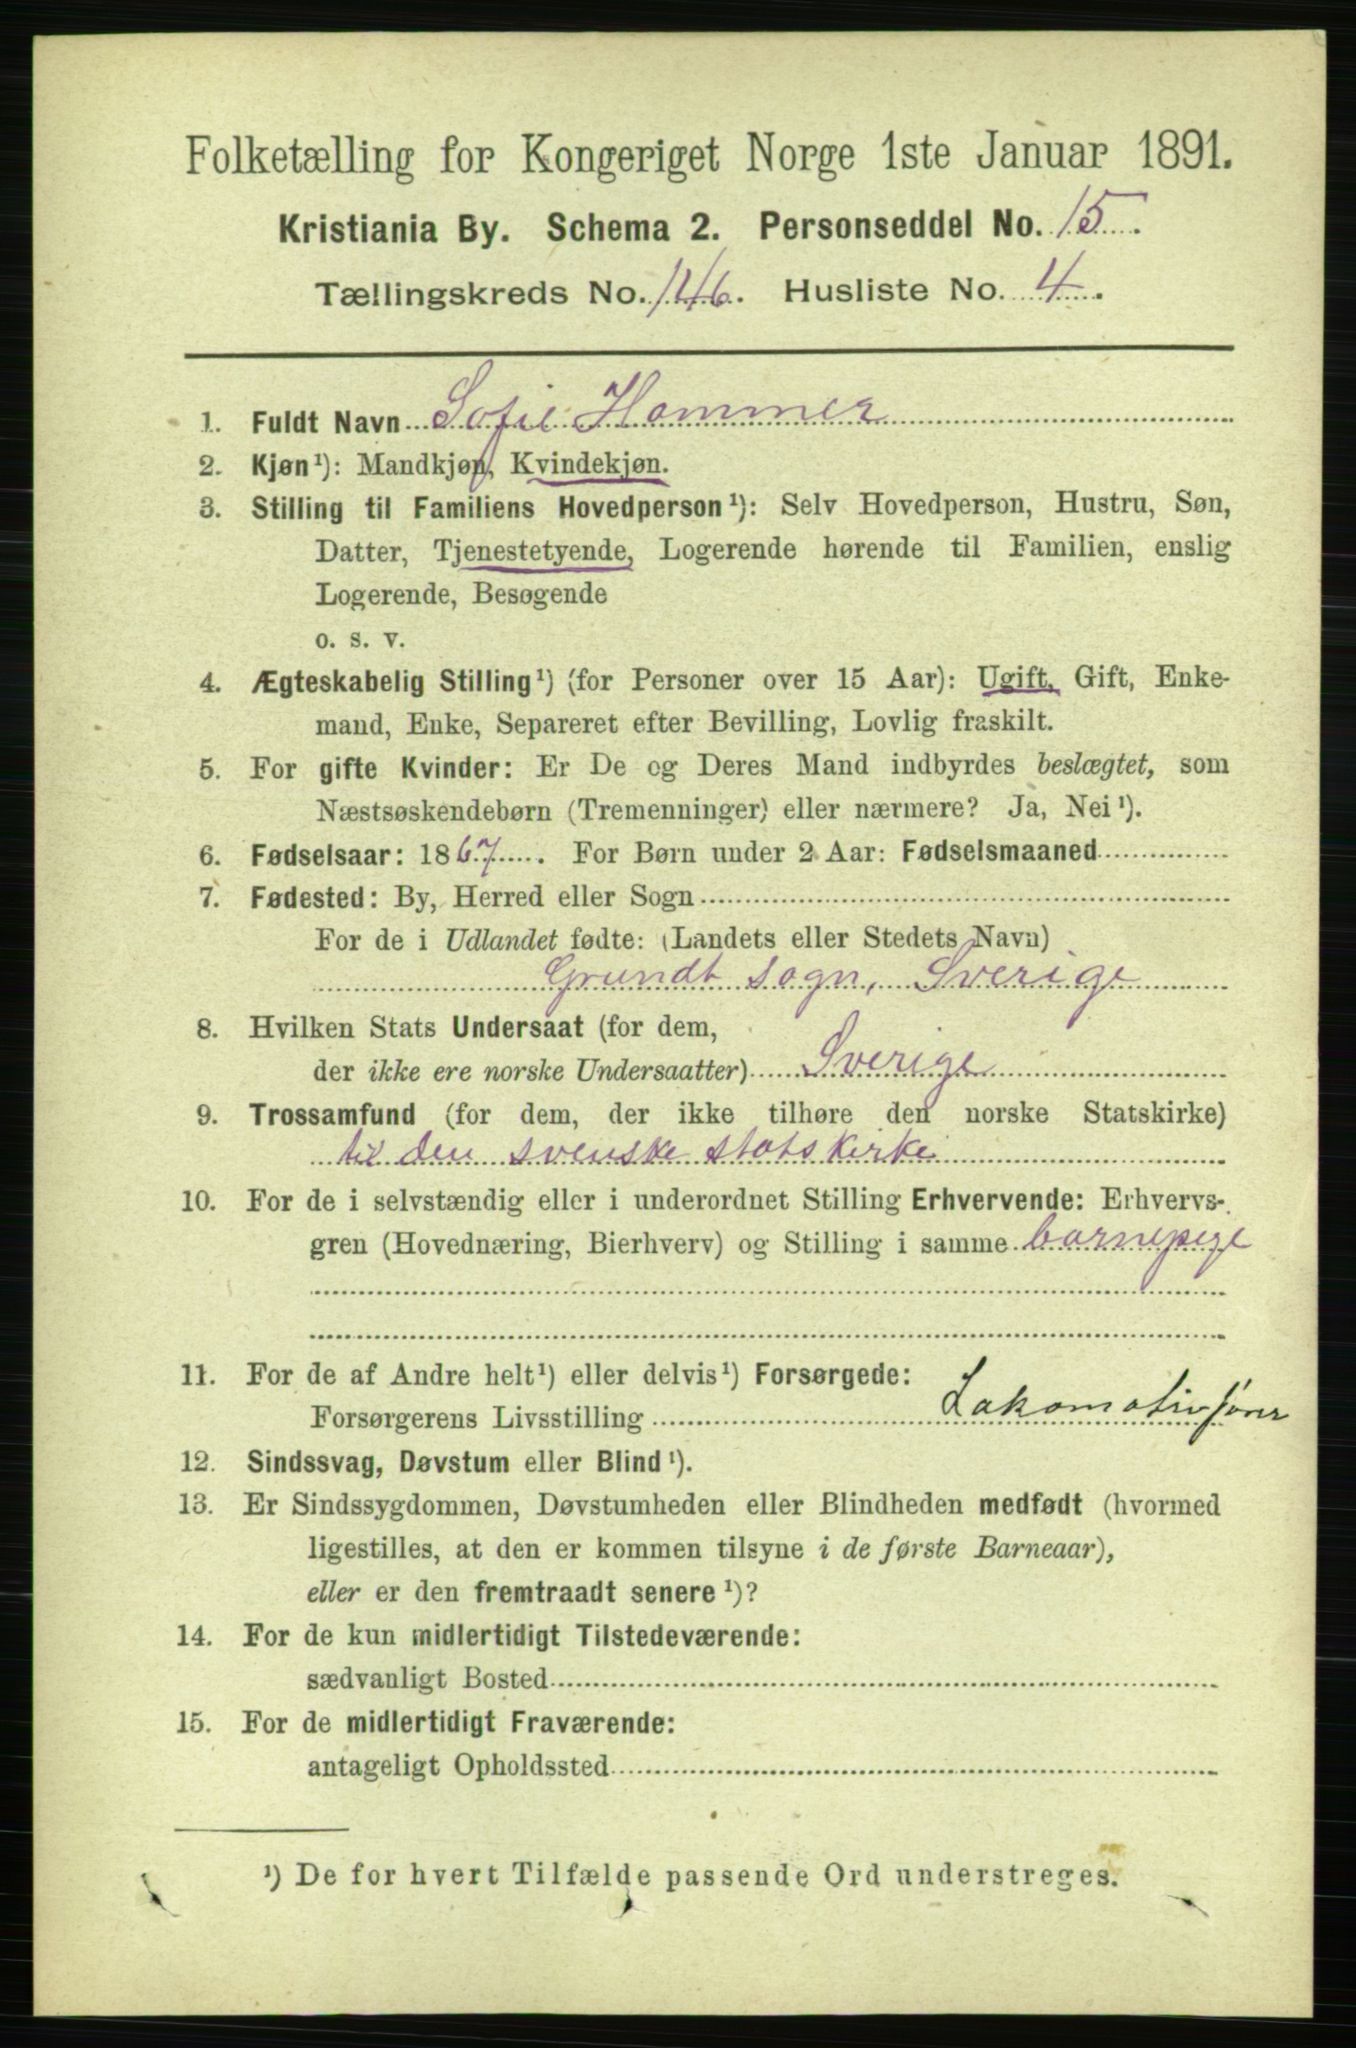 Folketælling for Kongeriget Norge 1ste Januar 1891.
Kristiania By. Schema 2. Personseddel No. 15.
Tællingskreds No. 146. Husliste No. 4.
1. Fuldt Navn Sofie Hammer
2. Kjøn¹): Mandkjøn, Kvindekjøn.
3. Stilling til Familiens Hovedperson¹): Selv Hovedperson, Hustru, Søn,
Datter, Tjenestetyende, Logerende hørende til Familien, enslig
Logerende, Besøgende
o. s. v.
4. Ægteskabelig Stilling¹) (for Personer over 15 Aar): Ugift, Gift, Enke-
mand, Enke, Separeret efter Bevilling, Lovlig fraskilt.
5. For gifte Kvinder: Er De og Deres Mand indbyrdes beslægtet, som
Næstsøskendebørn (Tremenninger) eller nærmere? Ja, Nei¹).
6. Fødselsaar: 1867. For Børn under 2 Aar: Fødselsmaaned
7. Fødested: By, Herred eller Sogn
For de i Udlandet fødte: (Landets eller Stedets Navn)
Grundt sogn, Sverige
8. Hvilken Stats Undersaat (for dem,
der ikke ere norske Undersaatter) Sverige
9. Trossamfund (for dem, der ikke tilhøre den norske Statskirke)
til den svenske statskirke
10. For de i selvstændig eller i underordnet Stilling Erhvervende: Erhvervs-
gren (Hovednæring, Bierhverv) og Stilling i samme barnepige
11. For de af Andre helt¹) eller delvis¹) Forsørgede:
Forsørgerens Livsstilling Lokomotivfører
12. Sindssvag, Døvstum eller Blind¹).
13. Er Sindssygdommen, Døvstumheden eller Blindheden medfødt (hvormed
ligestilles, at den er kommen tilsyne i de første Barneaar),
eller er den fremtraadt senere¹)?
14. For de kun midlertidigt Tilstedeværende:
sædvanligt Bosted
15. For de midlertidigt Fraværende:
antageligt Opholdssted
¹) De for hvert Tilfælde passende Ord understreges.